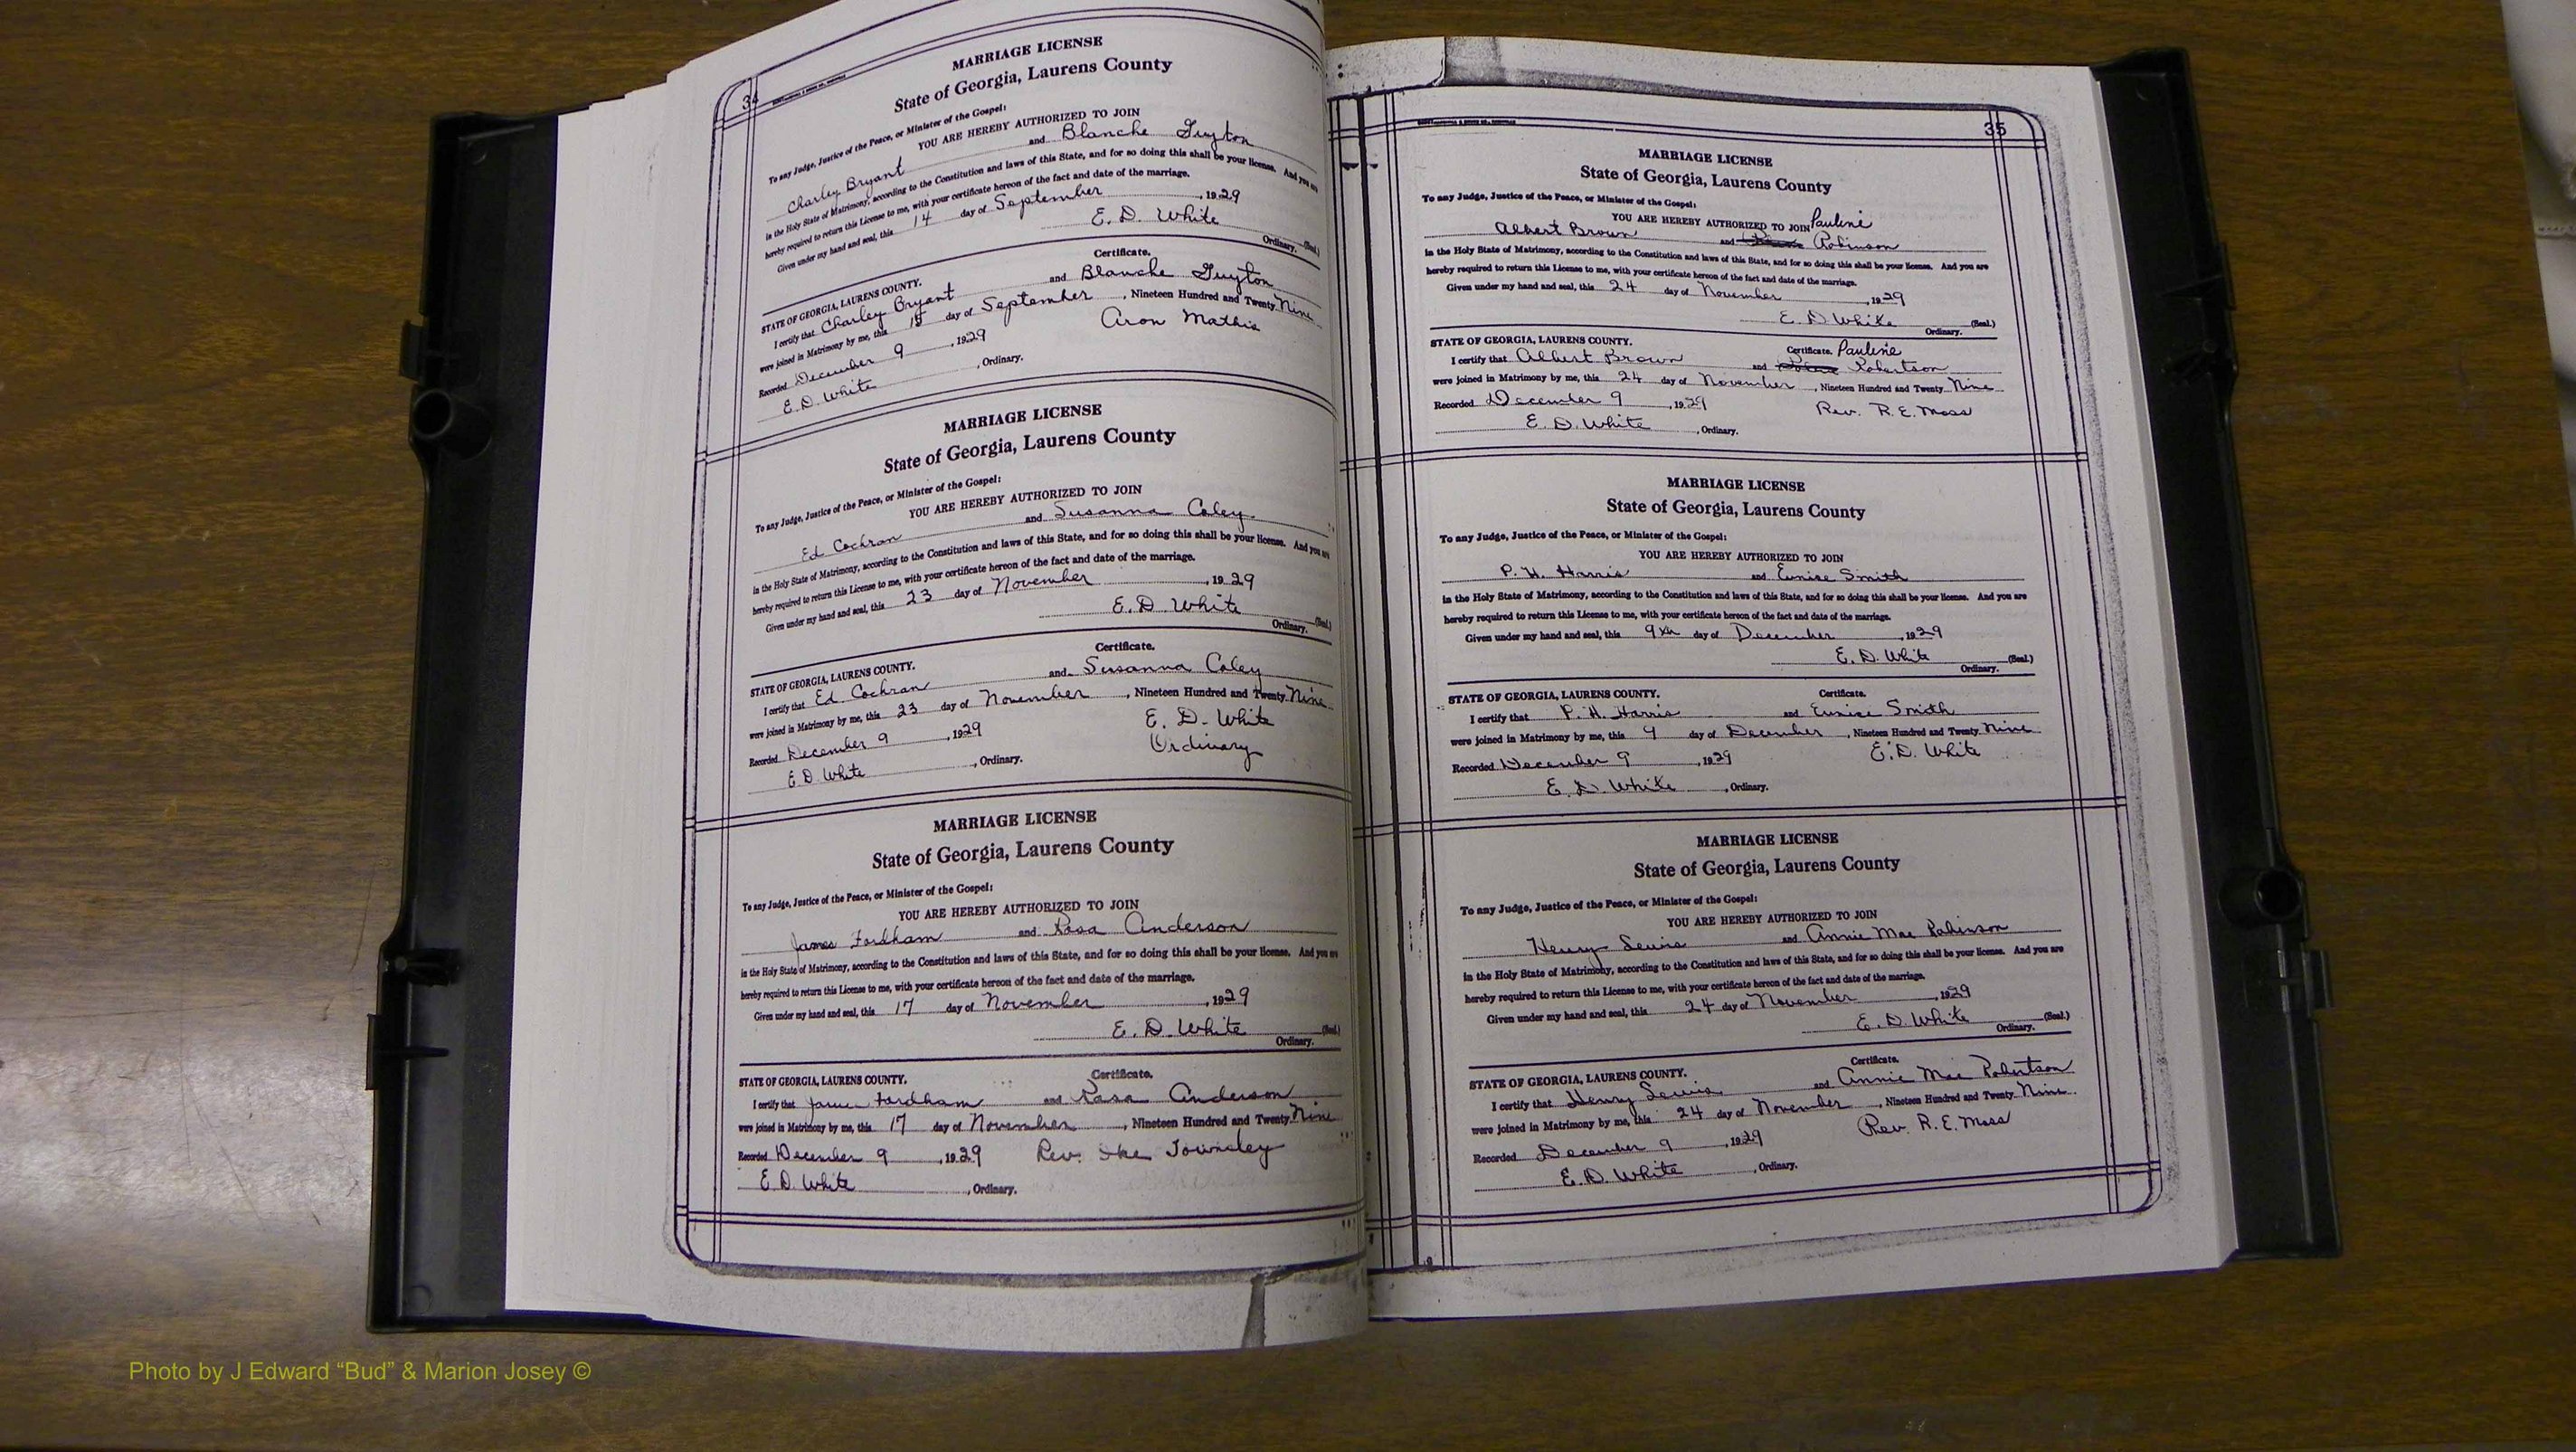 34
MARRIAGE LICENSE
State of Georgia, Laurens County
To any Judge, Justice of the Peace, or Minister of the Gospel:
YOU ARE HEREBY AUTHORIZED TO JOIN
Charley Bryant and Blanche Guyton
in the Holy State of Matrimony, according to the Constitution and laws of this State, and for so doing this shall be your license. And you are
hereby required to return this License to me, with your certificate hereon of the fact and date of the marriage.
Given under my hand and seal, this 14 day of September, 1929
E. D. White
Ordinary. (Seal.)
Certificate.
STATE OF GEORGIA, LAURENS COUNTY.
I certify that Charley Bryant and Blanche Guyton
were joined in Matrimony by me, this 15 day of September, Nineteen Hundred and Twenty Nine
Recorded December 9, 1929 Aron Mathis
E. D. White, Ordinary.
MARRIAGE LICENSE
State of Georgia, Laurens County
To any Judge, Justice of the Peace, or Minister of the Gospel:
YOU ARE HEREBY AUTHORIZED TO JOIN
Ed Cochran and Susanna Coley
in the Holy State of Matrimony, according to the Constitution and laws of this State, and for so doing this shall be your license. And you are
hereby required to return this License to me, with your certificate hereon of the fact and date of the marriage.
Given under my hand and seal, this 23 day of November, 1929
E. D. White (Seal.)
Ordinary.
Certificate.
STATE OF GEORGIA, LAURENS COUNTY.
I certify that Ed. Cochran and Susanna Coley
were joined in Matrimony by me, this 23 day of November, Nineteen Hundred and Twenty Nine
Recorded December 9, 1929 E. D. White
E D White, Ordinary. Ordinary
MARRIAGE LICENSE
State of Georgia, Laurens County
To any Judge, Justice of the Peace, or Minister of the Gospel:
YOU ARE HEREBY AUTHORIZED TO JOIN
James Fordham and Rosa Anderson
in the Holy State of Matrimony, according to the Constitution and laws of this State, and for so doing this shall be your license. And you are
hereby required to return this License to me, with your certificate hereon of the fact and date of the marriage.
Given under my hand and seal, this 17 day of November, 1929
E. D. White (Seal.)
Ordinary.
Certificate.
STATE OF GEORGIA, LAURENS COUNTY.
I certify that James Fordham and Rosa Anderson
were joined in Matrimony by me, this 17 day of November, Nineteen Hundred and Twenty Nine
Recorded December 9, 1929 Rev. Ike Townsley
E D. White, Ordinary.
35
MARRIAGE LICENSE
State of Georgia, Laurens County
To any Judge, Justice of the Peace, or Minister of the Gospel:
YOU ARE HEREBY AUTHORIZED TO JOIN Pauline
Albert Brown and Robinson
in the Holy State of Matrimony, according to the Constitution and laws of this State, and for so doing this shall be your license. And you are
hereby required to return this License to me, with your certificate hereon of the fact and date of the marriage.
Given under my hand and seal, this 24 day of November, 1929
E. D. White (Seal.)
Ordinary.
STATE OF GEORGIA, LAURENS COUNTY. Certificate. Pauline
I certify that Albert Brown and Robertson
were joined in Matrimony by me, this 24 day of November, Nineteen Hundred and Twenty Nine
Recorded December 9, 1929 Rev. R. E. Moss
E. D. White, Ordinary.
MARRIAGE LICENSE
State of Georgia, Laurens County
To any Judge, Justice of the Peace, or Minister of the Gospel:
YOU ARE HEREBY AUTHORIZED TO JOIN
P. H. Harris and Eunice Smith
in the Holy State of Matrimony, according to the Constitution and laws of this State, and for so doing this shall be your license. And you are
hereby required to return this License to me, with your certificate hereon of the fact and date of the marriage.
Given under my hand and seal, this 9th day of December, 1929
E. D. White (Seal.)
Ordinary.
STATE OF GEORGIA, LAURENS COUNTY. Certificate.
I certify that P. H. Harris and Eunice Smith
were joined in Matrimony by me, this 9 day of December, Nineteen Hundred and Twenty Nine
Recorded December 9, 1929 E. D. White
E. D. White, Ordinary.
MARRIAGE LICENSE
State of Georgia, Laurens County
To any Judge, Justice of the Peace, or Minister of the Gospel:
YOU ARE HEREBY AUTHORIZED TO JOIN
Henry Lewis and Annie Mae Robinson
in the Holy State of Matrimony, according to the Constitution and laws of this State, and for so doing this shall be your license. And you are
hereby required to return this License to me, with your certificate hereon of the fact and date of the marriage.
Given under my hand and seal, this 24 day of November, 1929
E. D. White (Seal.)
Ordinary.
Certificate.
STATE OF GEORGIA, LAURENS COUNTY.
I certify that Henry Lewis and Annie Mae Robertson
were joined in Matrimony by me, this 24 day of November, Nineteen Hundred and Twenty Nine
Recorded December 9, 1929 Rev. R. E. Moss
E. D. White, Ordinary.
Photo by J Edward “Bud” & Marion Josey ©